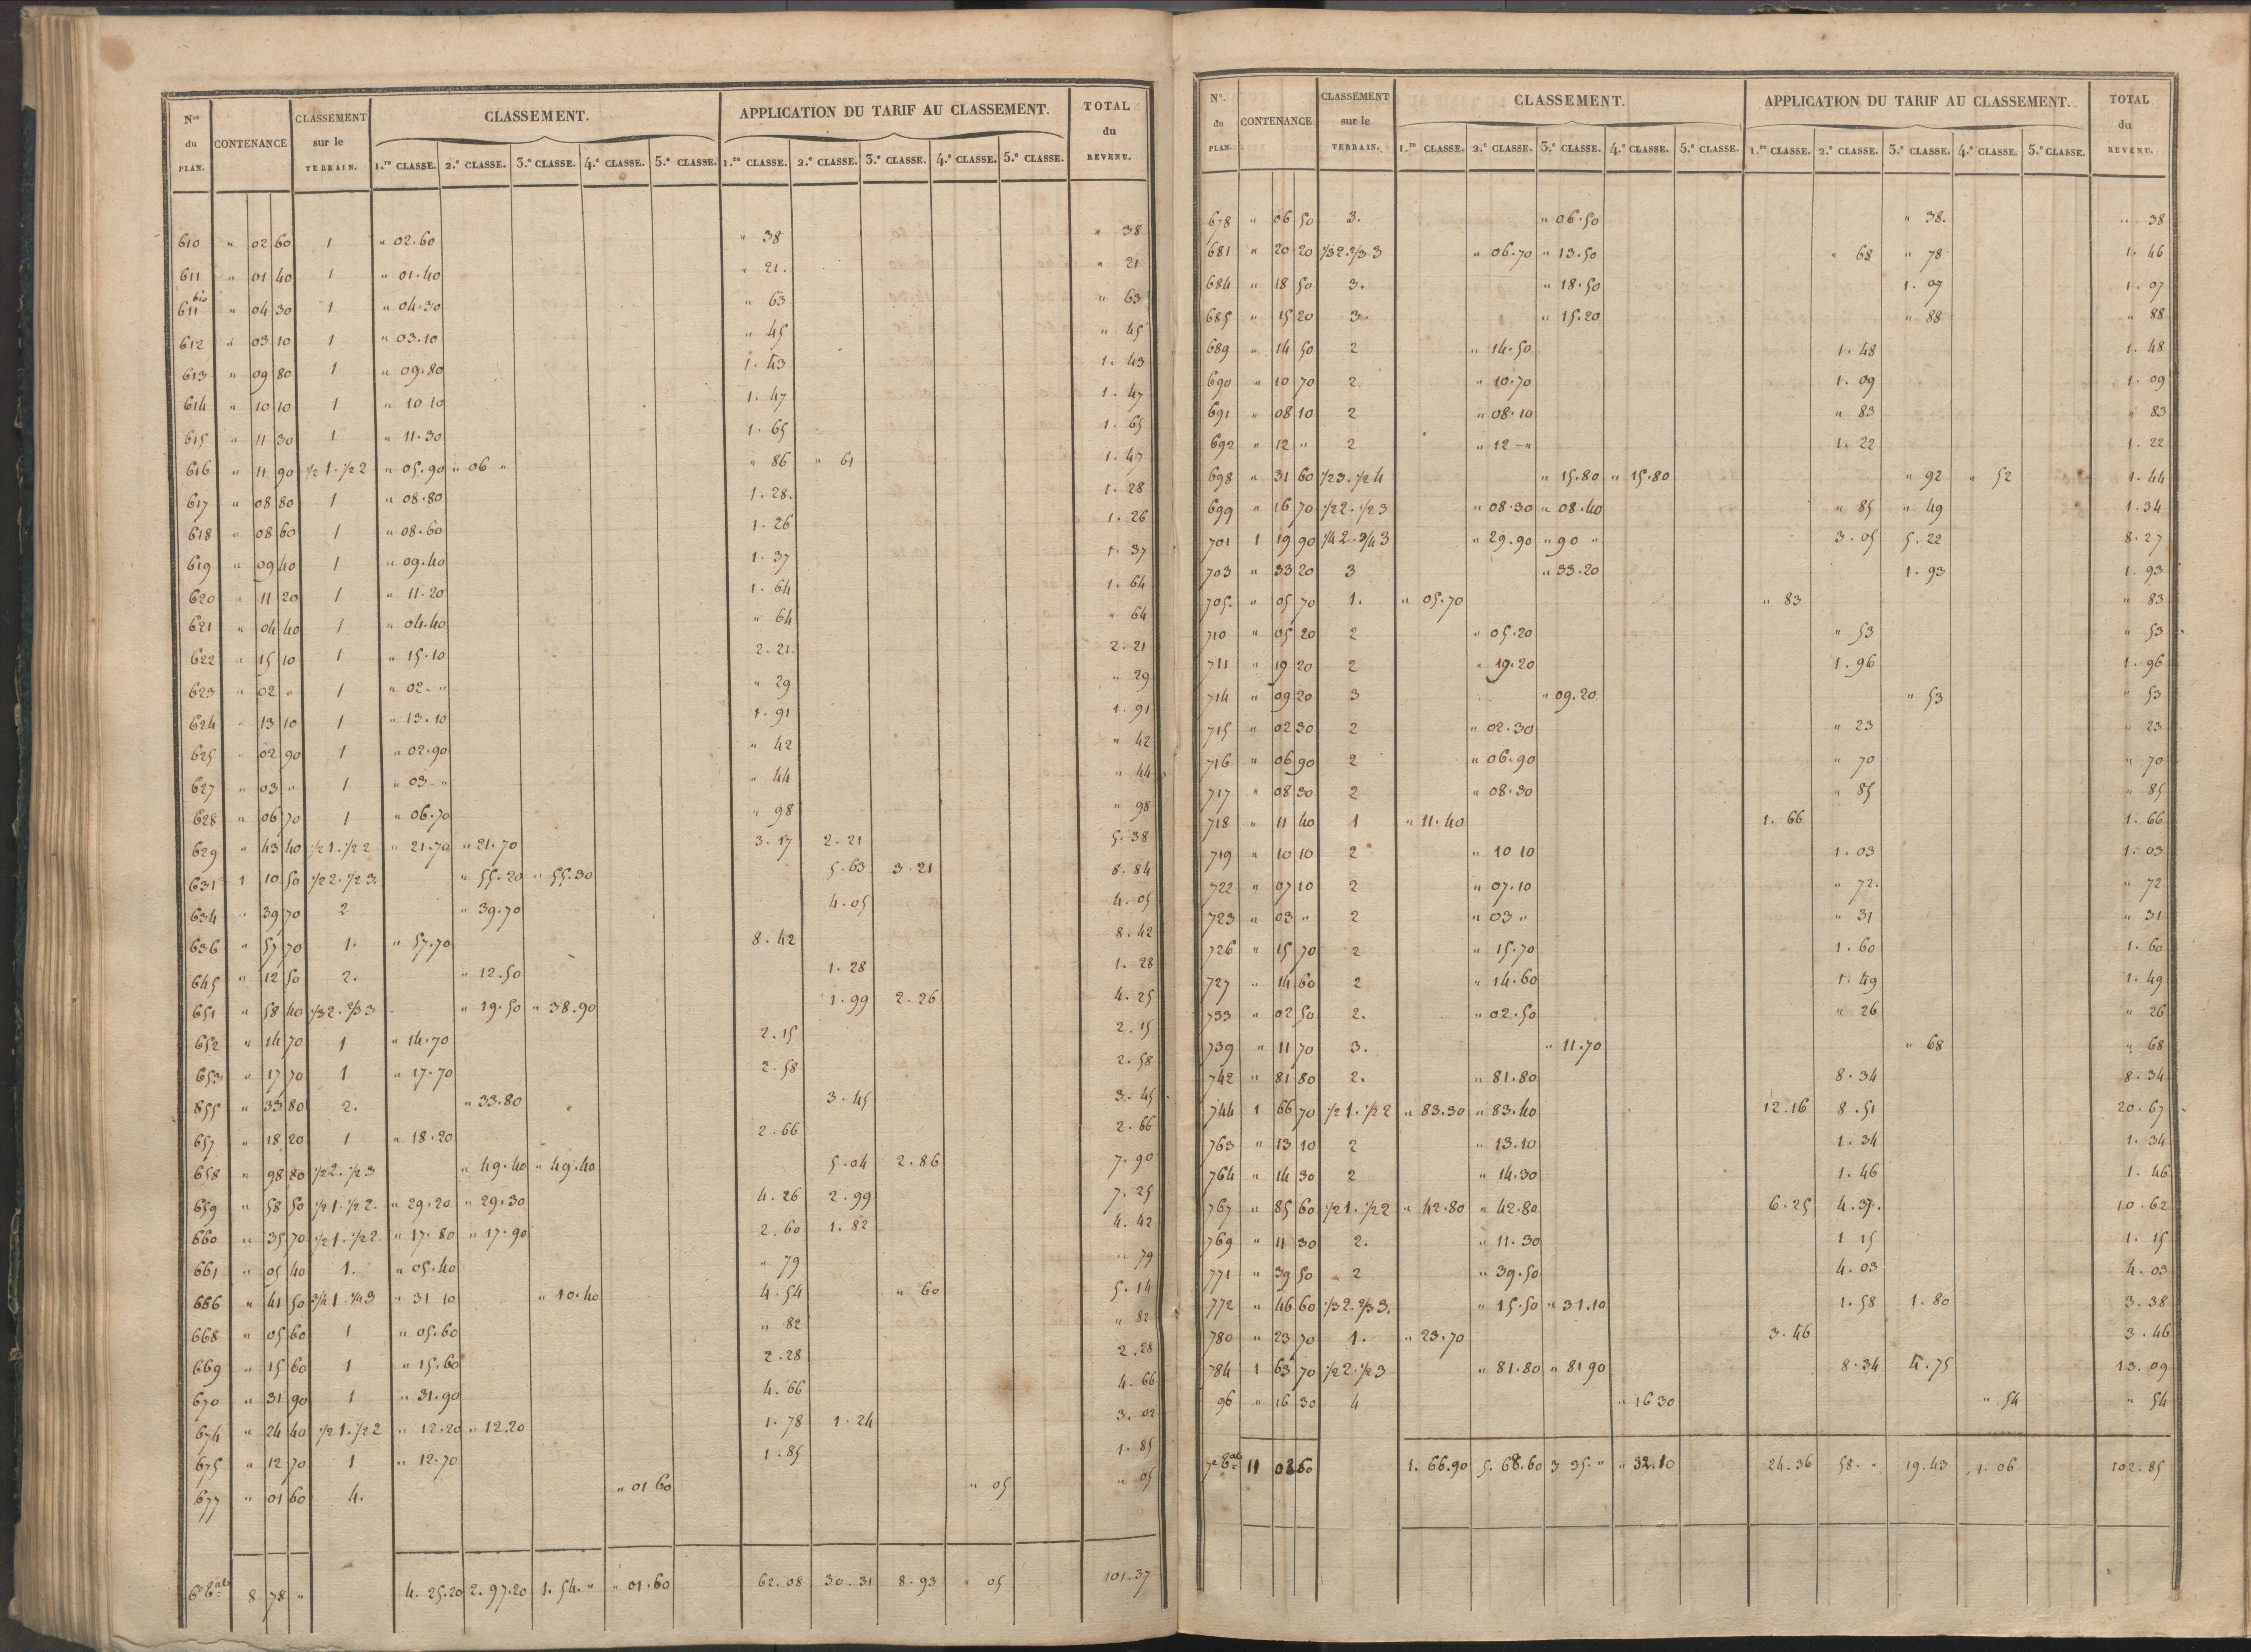 Nos du PLAN. CONTENANCE CLASSEMENT sur le TERRAIN. CLASSEMENT. APPLICATION DU TARIF AU CLASSEMENT. TOTAL du REVENU.
1.re CLASSE. 2.e CLASSE. 3.e CLASSE. 4.e CLASSE. 5.e CLASSE. 1.re CLASSE. 2.e CLASSE. 3.e CLASSE. 4.e CLASSE. 5.e CLASSE.
610 " 02 60 1 " 02.60 " 38 " 38
611 " 01 40 1 " 01.40 " 21. " 21
611 bis " 04 30 1 " 04.30 " 63 " 63
612 " 03 10 1 " 03.10 " 45 " 45
613 " 09 80 1 " 09.80 1.43 1.43
614 " 10 10 1 " 10 10 1.47 1.47
615 " 11 30 1 " 11.30 1.65 1.65
616 " 11 90 1/2 1. 1/2 2 " 05.90 " 06 " " 86 " 61 1.47
617 " 08 80 1 " 08.80 1.28. 1.28
618 " 08 60 1 " 08.60 1.26 1.26
619 " 09 40 1 " 09.40 1.37 1.37
620 " 11 20 1 " 11.20 1.64 1.64
621 " 04 40 1 " 04.40 " 64 " 64
622 " 15 10 1 " 15.10 2.21 2.21
623 " 02 " 1 " 02- " " 29 " 29
624 " 13 10 1 " 13.10 1.91 1.91
625 " 02 90 1 " 02.90 " 42 " 42
627 " 03 " 1 " 03- " " 44 " 44
628 " 06 70 1 " 06.70 " 98 " 98
629 " 43 40 1/2 1. 1/2 2 " 21.70 " 21.70 3.17 2.21 5.38
631 1 10 50 1/2 2. 1/2 3. " 55.20 " 55.30 5.63 3.21 8.84
634 " 39 70 2 " 39.70 4.05 4.05
636 " 57 70 1. " 57.70 8.42 8.42
645 " 12 50 2. " 12.50 1.28 1.28
651 " 58 40 1/3 2. 2/3 3 " 19.50 " 38.90 1.99 2.26 4.25
652 " 14 70 1 " 14.70 2.15 2.15
653 " 17 70 1 " 17.70 2.58 2.58
855 " 33 80 2. " 33.80 3.45 3.45
657 " 18 20 1 " 18.20 2.66 2.66
658 " 98 80 1/2 2. 1/2 3 " 49.40 " 49.40 5.04 2.86 7.90
659 " 58 50 1/2 1. 1/2 2. " 29.20 " 29.30 4.26 2.99 7.25
660 " 35 70 1/2 1. 1/2 2. " 17.80 " 17.90 2.60 1.82 4.42
661 " 05 40 1. " 05.40 " 79 " 79
666 " 41 50 3/4 1. 1/4 3 " 31 10 " 10.40 4.54 " 60 5.14
668 " 05 60 1 " 05.60 " 82 " 82
669 " 15 60 1 " 15.60 2.28 2.28
670 " 31 90 1 " 31.90 4.66 4.66
674 " 24 40 1/2 1. 1/2 2 " 12.20 " 12.20 1.78 1.24 3.02
675 " 12 70 1 " 12.70 1.85 1.85
677 " 01 60 4. " 01 60 " 05 " 05
8 78 " 4.25.20 2.97.20 1.54. " " 01.60 62.08 30.31 8.93 " 05 101.37
N°. du PLAN. CONTENANCE CLASSEMENT sur le TERRAIN. CLASSEMENT. APPLICATION DU TARIF AU CLASSEMENT. TOTAL du REVENU.
1.re CLASSE. 2.e CLASSE. 3.e CLASSE. 4.e CLASSE. 5.e CLASSE. 1.re CLASSE. 2.e CLASSE. 3.e CLASSE. 4.e CLASSE. 5.e CLASSE.
678 " 06 50 3. " 06.50 " 38. " 38
681 " 20 20 1/3 2. 2/3 3 " 06.70 " 13.50 " 68 " 78 1.46
684 " 18 50 3. " 18.50 1.07 1.07
685 " 15 20 3. " 15.20 " 88 " 88
689 " 14 50 2 " 14.50 1.48 1.48
690 " 10 70 2 " 10.70 1.09 1.09
691 " 08 10 2 " 08.10 " 83 " 83
692 " 12 " 2 " 12- " 1.22 1.22
698 " 31 60 1/2 3. 1/2 4 " 15.80 " 15.80 " 92 " 52 1.44
699 " 16 70 1/2 2. 1/2 3 " 08.30 " 08.40 " 85 " 49 1.34
701 1 19 90 1/4 2. 3/4 3 " 29.90 " 90 " 3.05 5.22 8.27
703 " 33 20 3 " 33.20 1.93 1.93
705. " 05 70 1. " 05.70 " 83 " 83
710 " 05 20 2 " 05.20 " 53 " 53
711 " 19 20 2 " 19.20 1.96 1.96
714 " 09 20 3 " 09.20 " 53 " 53
715 " 02 30 2 " 02.30 " 23 " 23
716 " 06 90 2 " 06.90 " 70 " 70
717 " 08 30 2 " 08.30 " 85 " 85
718 " 11 40 1 " 11.40 1.66 1.66
719 " 10 10 2 " 10 10 1.03 1.03
722 " 07 10 2 " 07.10 " 72. " 72
723 " 03 " 2 " 03 " " 31 " 31
726 " 15 70 2 " 15.70 1.60 1.60
727 " 14 60 2 " 14.60 1.49 1.49
733 " 02 50 2. " 02.50 " 26 " 26
739 " 11 70 3. " 11.70 " 68 " 68
742 " 81 80 2. " 81.80 8.34 8.34
744 1 66 70 1/2 1. 1/2 2 " 83.30 " 83.40 12.16 8.51 20.67
763 " 13 10 2 " 13.10 1.34 1.34
764 " 14 30 2 " 14.30 1.46 1.46
767 " 85 60 1/2 1. 1/2 2 " 42.80 " 42.80 6.25 4.37. 10.62
769 " 11 30 2. " 11.30 1 15 1.15
771 " 39 50 2 " 39.50 4.03 4.03
772 " 46 60 1/3 2. 2/3 3. " 15.50 " 31.10 1.58 1.80 3.38
780 " 23 70 1. " 23.70 3.46 3.46
784 1 63 70 1/2 2. 1/2 3 " 81.80 " 81 90 8.34 4.75 13.09
96 " 16 30 4 " 16 30 " 54 " 54
11 02 60 1.66.90 5.68.60 3 35. " " 32.10 24.36 58. " 19.43 1.06 102.85